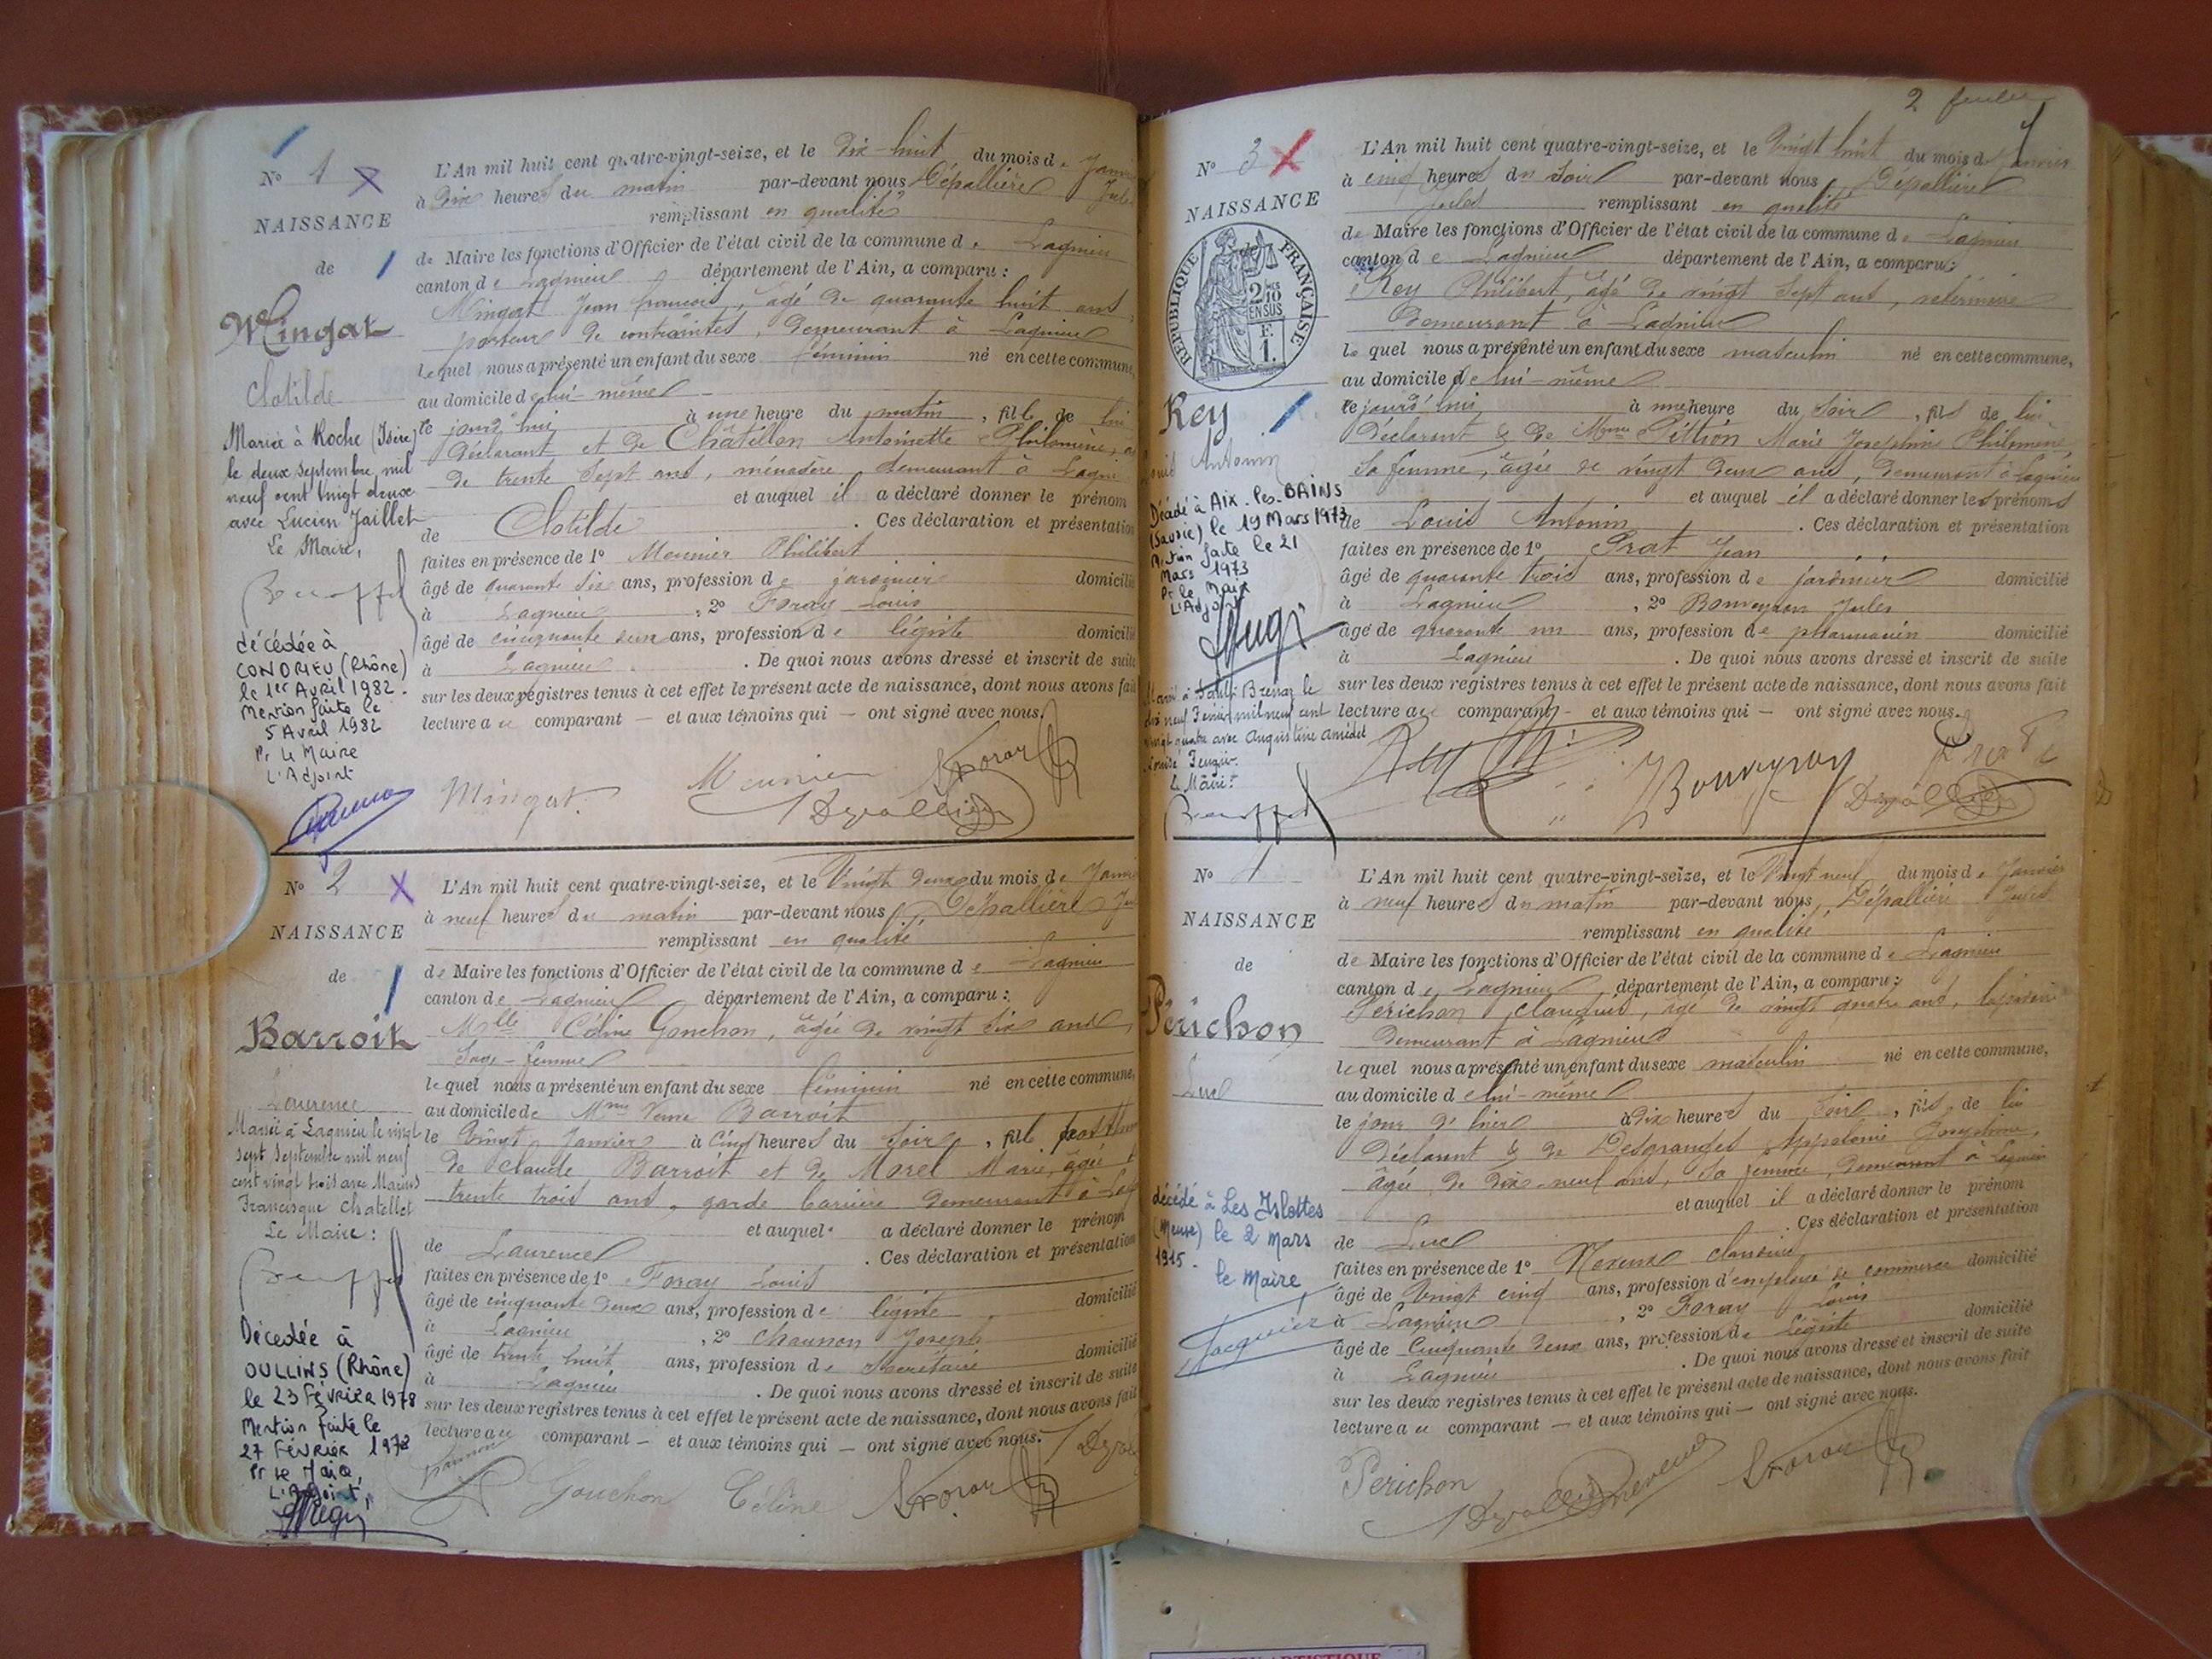 N° 1
NAISSANCE
de
Mingat
Clotilde
Mariée à Roche (Isère)
le deux Septembre mil
neuf cent vingt deux
avec Lucien Jaillet
Le Maire,
décédée à
CONDRIEU (Rhône)
le 1er Avril 1982.
Mention faite le
5 Avril 1982
Pr le Maire
L'Adjoint
L'An mil huit cent quatre-vingt-seize, et le dix-huit du mois de Janvi
à dix heures du matin par-devant nous Dépallière Jules
remplissant en qualité
de Maire les fonctions d'Officier de l'état civil de la commune de Lagnieu
canton de Lagnieu département de l'Ain, a comparu :
Mingat Jean françois, âgé de quarante huit ans,
porteur de contraintes, demeurant à Lagnieu
lequel nous a présenté un enfant du sexe féminin né en cette commune,
au domicile de lui-même
le jourd'hui à une heure du matin, fille de lui
déclarant et de Châtillon Antoinette Philomène,
de trente sept ans, ménagère demeurant à Lagni
et auquel il a déclaré donner le prénom
de Clotilde . Ces déclaration et présentation
faites en présence de 1° Meunier Philibert
âgé de quarante six ans, profession de jardinier domicilié
à Lagnieu , 2° Foray Louis
âgé de cinquante deux ans, profession de légiste domicilié
à Lagnieu . De quoi nous avons dressé et inscrit de suite
sur les deux registres tenus à cet effet le présent acte de naissance, dont nous avons fait
lecture au comparant — et aux témoins qui — ont signé avec nous.
Mingat Meunier Foray
Dépallière
N° 2
NAISSANCE
de
Barroit
Laurence
Mariée à Lagnieu le vingt
sept Septembre mil neuf
cent vingt trois avec Marius
Francisque Chatellet
Le Maire :
Décédée à
OULLINS (Rhône)
le 23 Février 1978
Mention faite le
27 FÉVRIER 1978
Pr le Maire,
L'Adjoint,
L'An mil huit cent quatre-vingt-seize, et le Vingt deux du mois de Janvi
à neuf heures du matin par-devant nous, Dépallière Jul
remplissant en qualité
de Maire les fonctions d'Officier de l'état civil de la commune de Lagnieu
canton de Lagnieu département de l'Ain, a comparu :
Mlle Céline Gonchon, âgée de vingt six ans,
Sage-femme
lequel nous a présenté un enfant du sexe féminin né en cette commune,
au domicile de Mme Veuve Barroit
le Vingt Janvier à cinq heures du soir, fille posthume
de Claude Barroit et de Morel Marie, âgée
trente trois ans, garde barrière demeurant à Lag
et auquel a déclaré donner le prénom
de Laurence . Ces déclaration et présentation
faites en présence de 1° Foray Louis
âgé de cinquante deux ans, profession de légiste domicilié
à Lagnieu , 2° Chaunon Joseph
âgé de trente huit ans, profession de Secrétaire domicilié
à Lagnieu . De quoi nous avons dressé et inscrit de suite
sur les deux registres tenus à cet effet le présent acte de naissance, dont nous avons fait
lecture au comparant — et aux témoins qui — ont signé avec nous.
Gouchon Céline Foray
2
N° 3
NAISSANCE
RÉPUBLIQUE FRANÇAISE
2/10 EN SUS
F. 1.
Rey
Louis Antonin
Décédé à Aix-les-BAINS
(Savoie) le 19 Mars 1973
Mention faite le 21
Mars 1973
Pr le Maire
L'Adjoint
Marié à Sault-Brénaz le
dix neuf Février mil neuf cent
vingt quatre avec Augustine Amédel
le Maire :
L'An mil huit cent quatre-vingt-seize, et le Vingt huit du mois de Janvier
à cinq heures du soir par-devant nous, Dépallière
Jules remplissant en qualité
de Maire les fonctions d'Officier de l'état civil de la commune de Lagnieu
canton de Lagnieu département de l'Ain, a comparu :
Rey Philibert, âgé de vingt sept ans, vétérinaire
demeurant à Lagnieu
lequel nous a présenté un enfant du sexe masculin né en cette commune,
au domicile de lui-même
le jourd'hui à une heure du soir, fils de lui
déclarant & de Mme Pittion Marie Joséphine Philomène,
sa femme, âgée de vingt deux ans, demeurant à Lagnieu
et auquel il a déclaré donner les prénoms
de Louis Antonin . Ces déclaration et présentation
faites en présence de 1° Prat Jean
âgé de quarante trois ans, profession de jardinier domicilié
à Lagnieu , 2° Bonveyron Jules
âgé de quarante un ans, profession de pharmacien domicilié
à Lagnieu . De quoi nous avons dressé et inscrit de suite
sur les deux registres tenus à cet effet le présent acte de naissance, dont nous avons fait
lecture au comparant — et aux témoins qui — ont signé avec nous.
Rey Bonveyron Prat
Dépallière
N° 4
NAISSANCE
de
Périchon
Luc
décédé à Les Islettes
(Meuse) le 2 Mars
1915.
le Maire
Jacquier
L'An mil huit cent quatre-vingt-seize, et le Vingt neuf du mois de Janvier
à neuf heures du matin par-devant nous, Dépallière Jules
remplissant en qualité
de Maire les fonctions d'Officier de l'état civil de la commune de Lagnieu
canton de Lagnieu, département de l'Ain, a comparu :
Périchon Claudius, âgé de vingt quatre ans,
demeurant à Lagnieu
lequel nous a présenté un enfant du sexe masculin né en cette commune,
au domicile de lui-même
le jour d'hier à dix heures du soir, fils de lui
déclarant & de Desgranges Appolonie Joséphine,
âgée de dix-neuf ans, sa femme, demeurant à Lagnieu
et auquel il a déclaré donner le prénom
de Luc . Ces déclaration et présentation
faites en présence de 1°
âgé de Vingt cinq ans, profession d'employé de commerce domicilié
à Lagnieu , 2° Foray Louis
âgé de Cinquante deux ans, profession de légiste domicilié
à Lagnieu . De quoi nous avons dressé et inscrit de suite
sur les deux registres tenus à cet effet le présent acte de naissance, dont nous avons fait
lecture au comparant — et aux témoins qui — ont signé avec nous.
Perichon Foray
Dépallière